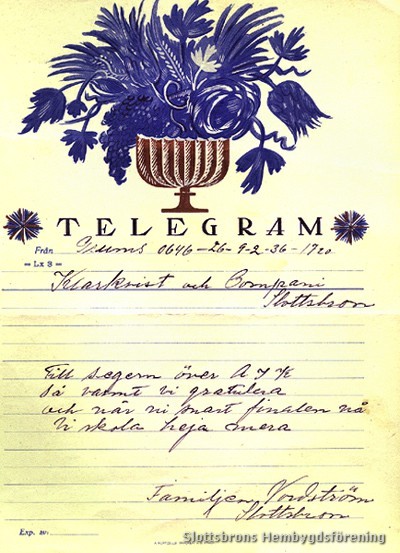 TELEGRAM
Från Grums 0646-26-9-2-36-1720
= Lx 8 =
Klarkvist och Compani
Slottsbron
Till segern över A I K
så varmt vi gratulera
och när ni snart finalen nå
Vi skola heja mera
Familjen Nordström
Slottsbron
Exp. av:
Slottsbrons Hembygdsförening